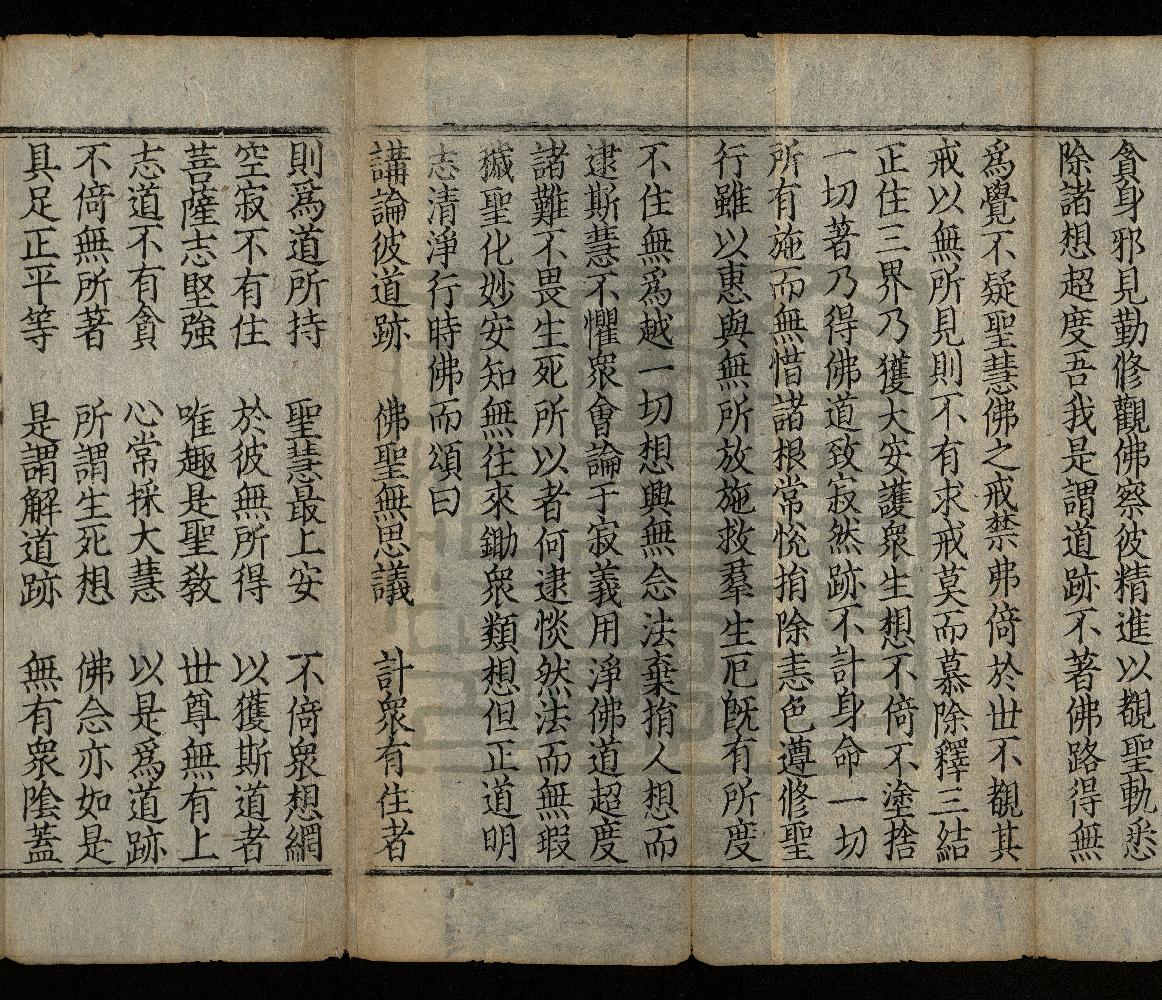 貪身邪見勤修觀佛察彼精進以覩聖軌悉
除諸想超度吾我是謂道跡不著佛路得無
為覺不疑聖慧佛之戒禁弗倚於世不覩其
戒以無所見則不有求戒莫而慕除釋三結
正住三界乃獲大安護衆生想不倚不塗捨
一切著乃得佛道致寂然跡不計身命一切
所有施而無惜諸根常悅捐除恚色遵修聖
行雖以惠與無所放施救羣生厄旣有所度
不住無為越一切想興無念法棄捐人想而
逮斯慧不懼衆會論于寂義用淨佛道超度
諸難不畏生死所以者何逮惔然法而無瑕
穢聖化妙安知無往來鋤衆類想但正道明
志清淨行時佛而頌曰
講論彼道跡　佛聖無思議　計衆有住者
則爲道所持　聖慧最上安　不倚衆想網
空寂不有住　於彼無所得　以獲斯道者
菩薩志堅強　唯趣是聖教　世尊無有上
志道不有貪　心常採大慧　以是爲道跡
不倚無所著　所謂生死想　佛念亦如是
具足正平等　是謂解道跡　無有衆陰蓋